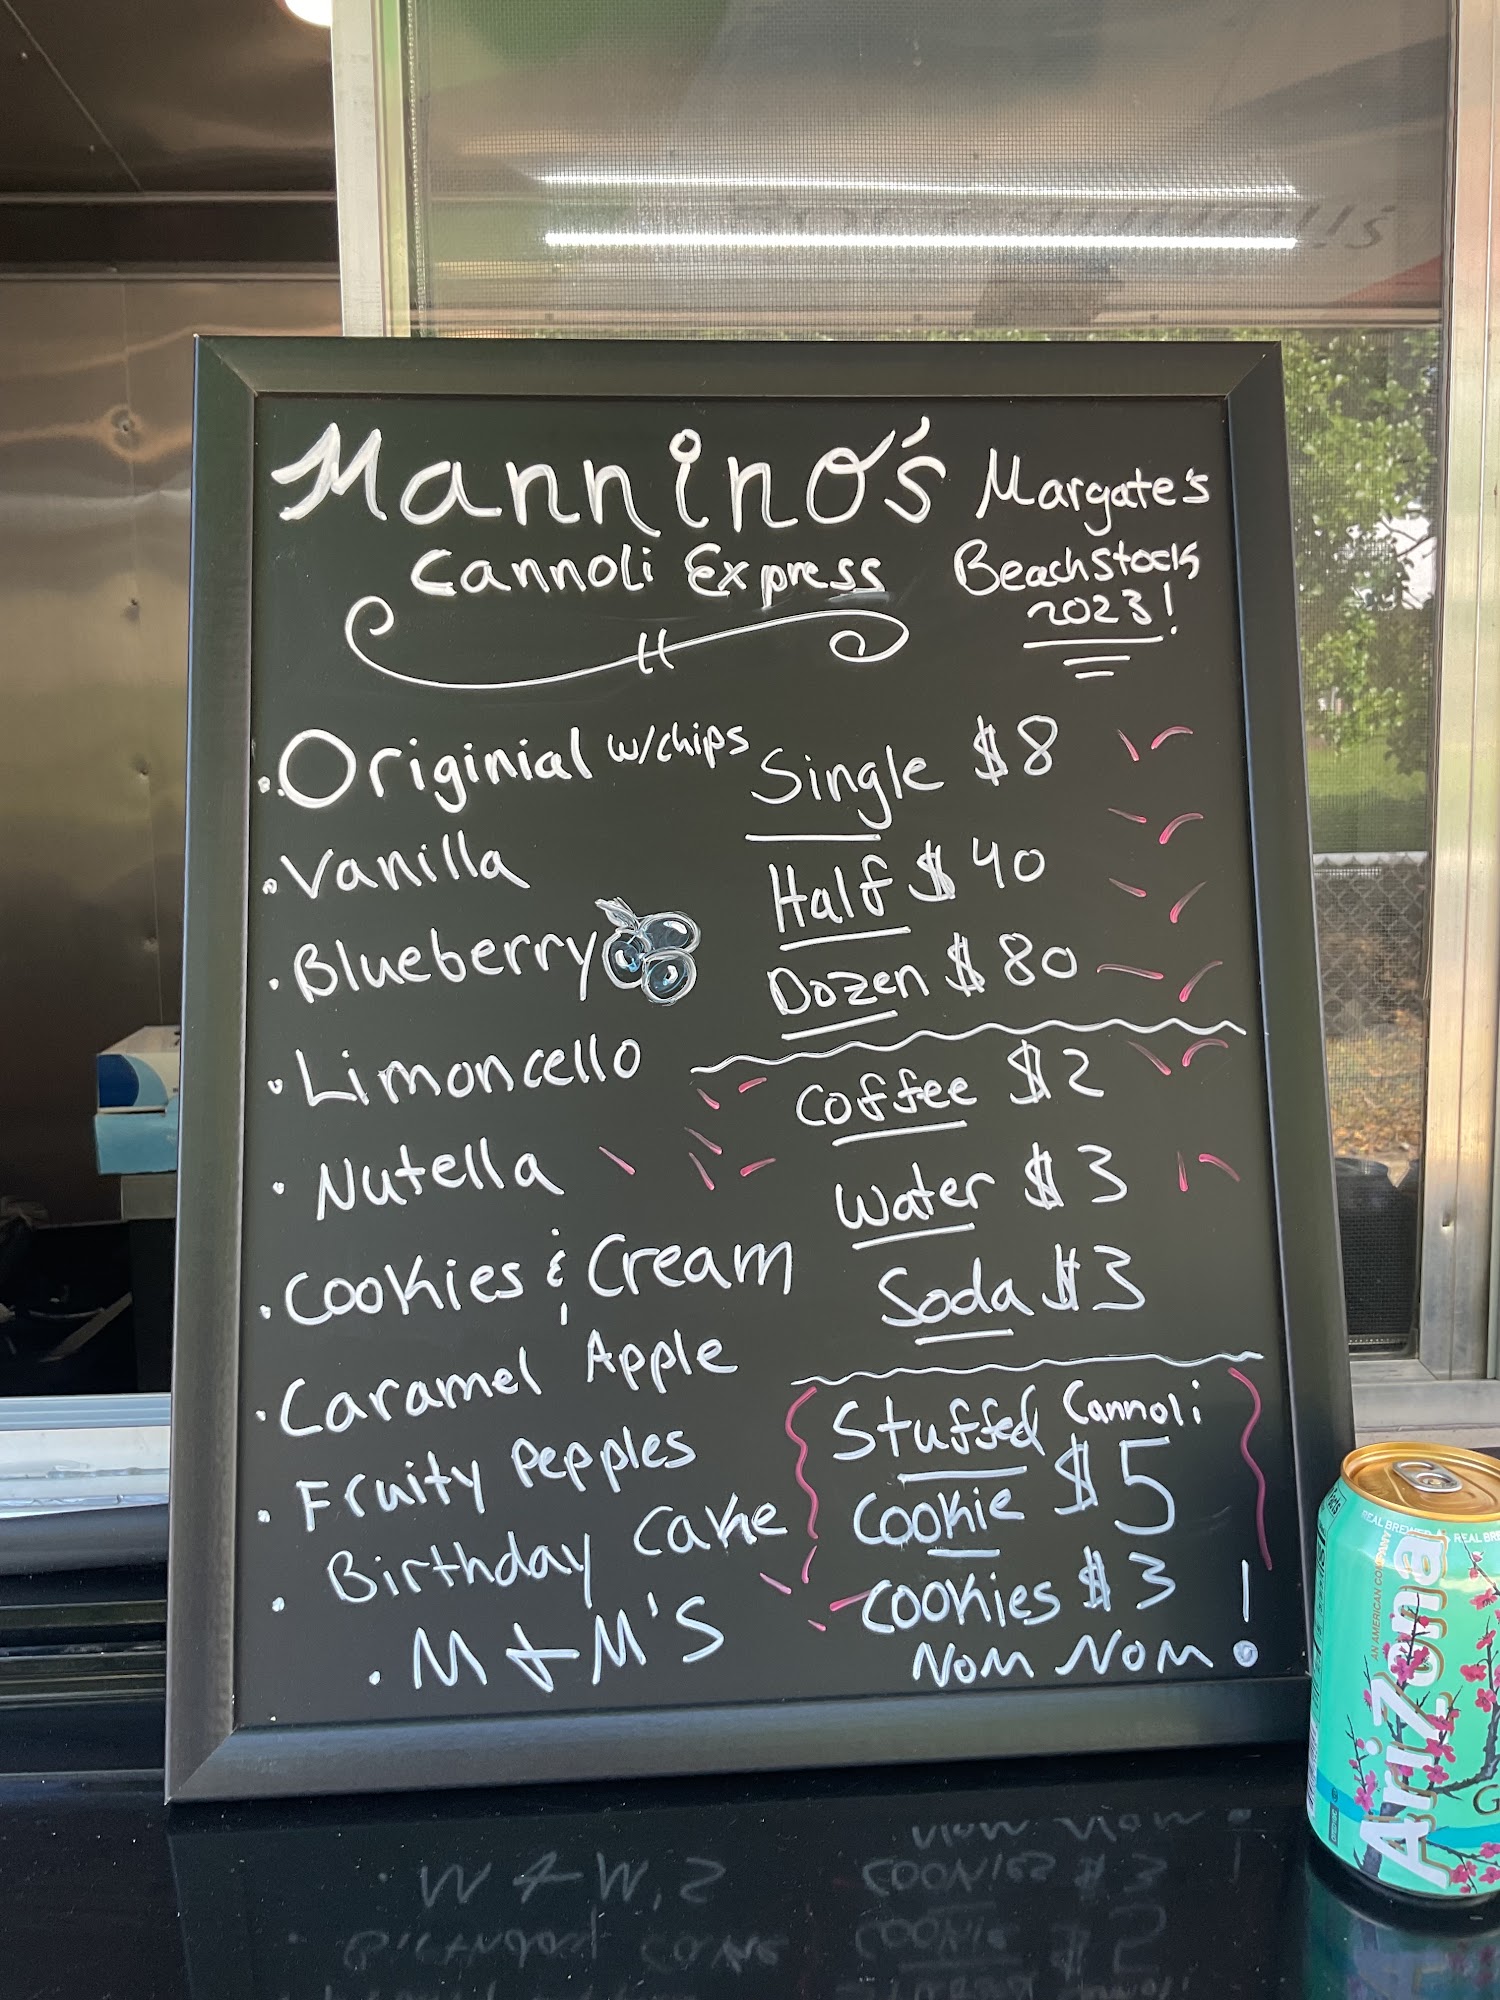 Mannino's
Cannoli Express
Margate's
Beachstock
2023!
Originial w/chips
Vanilla
Blueberry
Limoncello
Nutella
Cookies & Cream
Caramel Apple
Fruity Pepples
Birthday Cake
M & M'S
Single $8
Half $40
Dozen $80
Coffee $2
Water $3
Soda $3
Stuffed Cannoli
Cookie $5
Cookies $3
NOM NOM!
AriZona
AN AMERICAN COMPANY
REAL BREWED
REAL